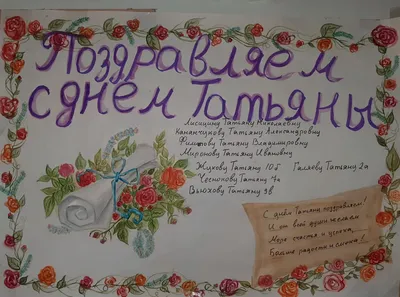 Поздравляем
с днём Татьяны
Лисицину Татьяну Николаевну
Каманчукову Татьяну Александровну
Филатову Татьяну Владимировну
Миронову Татьяну Ивановну
Жукову Татьяну 10б Галееву Татьяну 2а
Чеснокову Татьяну 7а
Вьюхову Татьяну 9в
С днём Татьяны поздравляем!
И от всей души желаем
Моря счастья и успеха,
Больше радости и смеха!